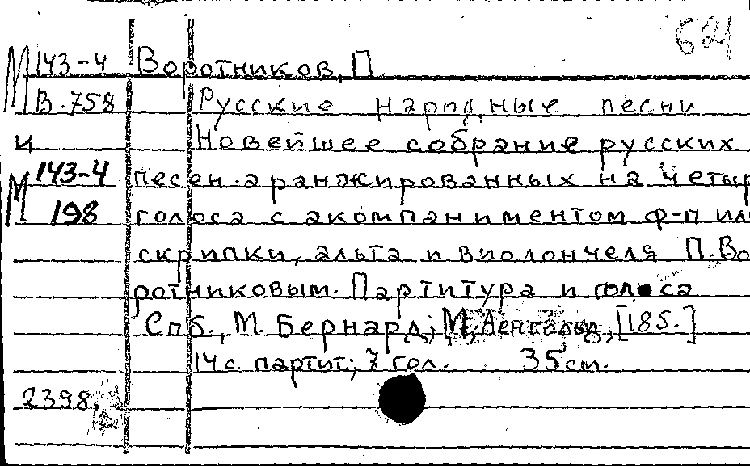 621
М 143-4 Воротников, П
В.758 Русские народные песни
и Новейшее собрание русских
М 143-4 песен аранжированных на четыр
198 голоса с акомпаниментом ф-п или
скрипки, альта и виолончеля П. Во
ротниковым. Партитура и голоса
Спб., М. Бернард; М., [185.]
14 с. партит; 7 гол. 35 см.
2398